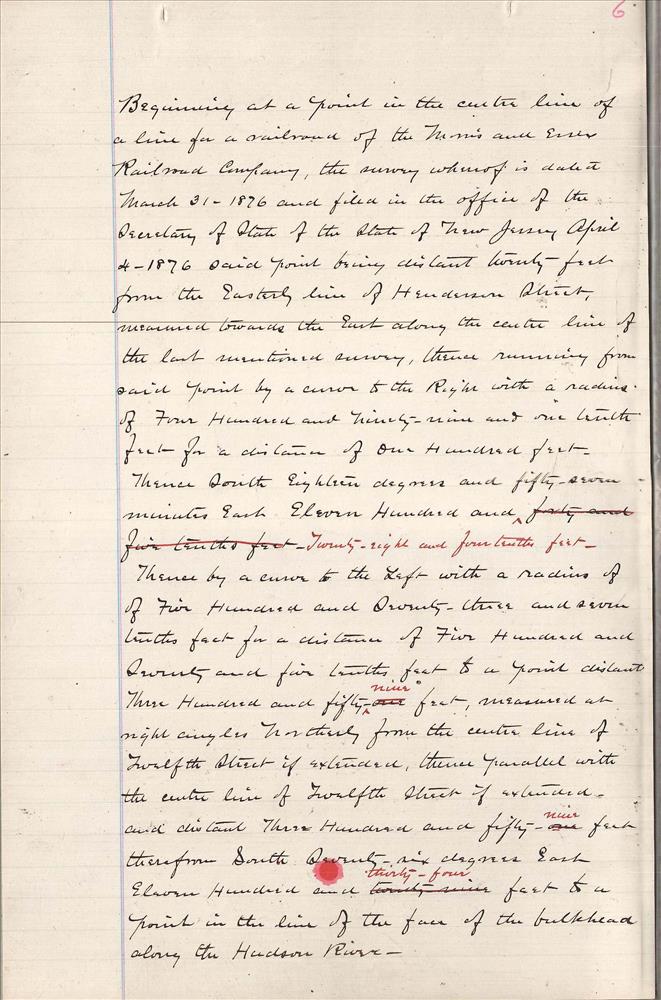 6
Beginning at a point in the centre line of
a line for a railroad of the Morris and Essex
Railroad Company, the survey whereof is dated
March 31-1876 and filed in the office of the
Secretary of State of the State of New Jersey April
4-1876 said point being distant twenty feet
from the Easterly line of Henderson Street,
measured towards the East along the centre line of
the last mentioned survey, thence running from
said point by a curve to the Right with a radius
of Four Hundred and Ninety-nine and one tenth
feet for a distance of One Hundred feet-
Thence South Eighteen degrees and fifty-seven
minutes East Eleven Hundred and forty and
five tenths feet - Twenty-eight and four tenths feet-
Thence by a curve to the Left with a radius of
of Five Hundred and Seventy-three and seven
tenths feet for a distance of Five Hundred and
Seventy and five tenths feet to a point distant
nine
Three Hundred and fifty-one feet, measured at
right angles Northerly from the centre line of
Twelfth Street if extended, thence parallel with
the centre line of Twelfth Street if extended-
nine
and distant Three Hundred and fifty-one feet
therefrom South Seventy-six degrees East
thirty-four
Eleven Hundred and twenty nine feet to a
point in the line of the face of the bulkhead
along the Hudson River-